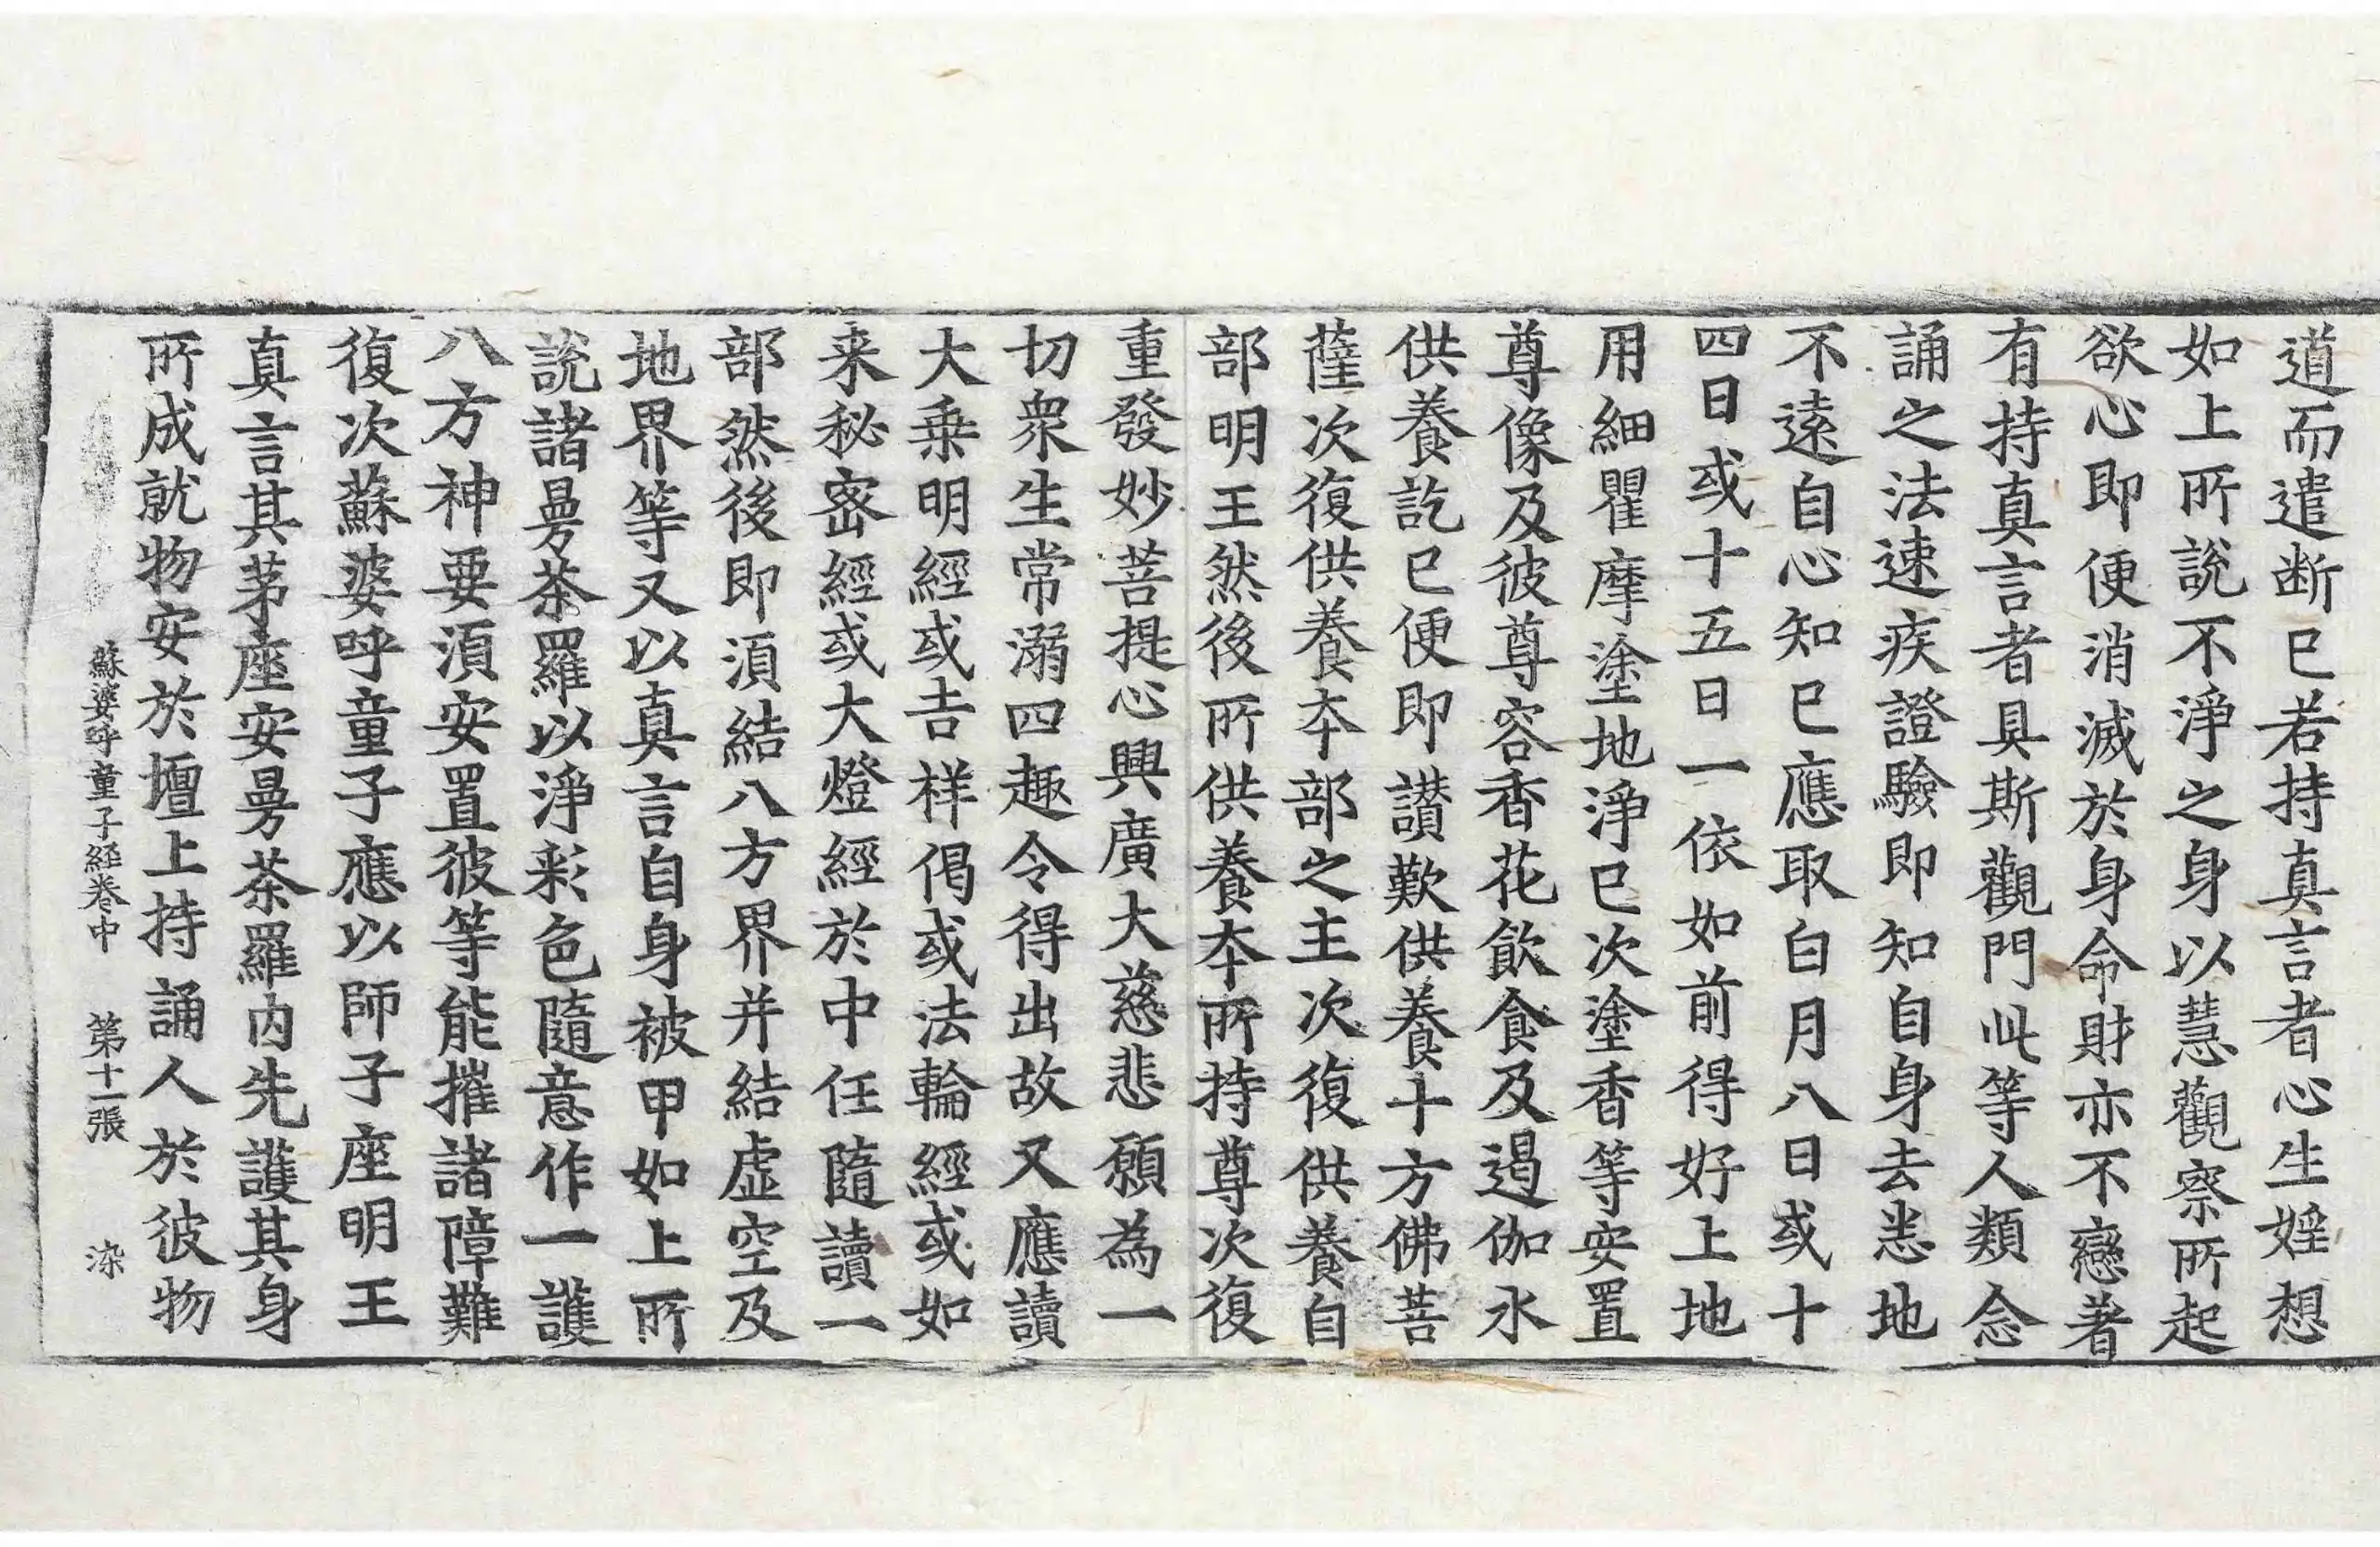 道而遣断已若持真言者心生婬想
如上所說不淨之身以慧觀察所起
欲心即便消滅於身命財亦不戀著
有持真言者具斯觀門此等人類念
誦之法速疾證驗即知自身去悉地
不遠自心知已應取白月八日或十
四日或十五日一依如前得好上地
用細瞿摩塗地淨已次塗香等安置
尊像及彼尊容香花飲食及遏伽水
供養訖已便即讃歎供養十方佛菩
薩次復供養本部之主次復供養自
部明王然後所供養本所持尊次復
重發妙菩提心興廣大慈悲願為一
切衆生常溺四趣令得出故又應讀
大乗明經或吉祥偈或法輪經或如
来秘密經或大燈經於中任隨讀一
部然後即湏結八方界并結虚空及
地界等又以真言自身被甲如上所
說諸曼荼羅以淨彩色隨意作一護
八方神要湏安置彼等能摧諸障難
復次蘇婆呼童子應以師子座明王
真言其茅座安曼荼羅内先護其身
所成就物安於壇上持誦人於彼物
蘇婆呼童子経卷中　第十一張　染